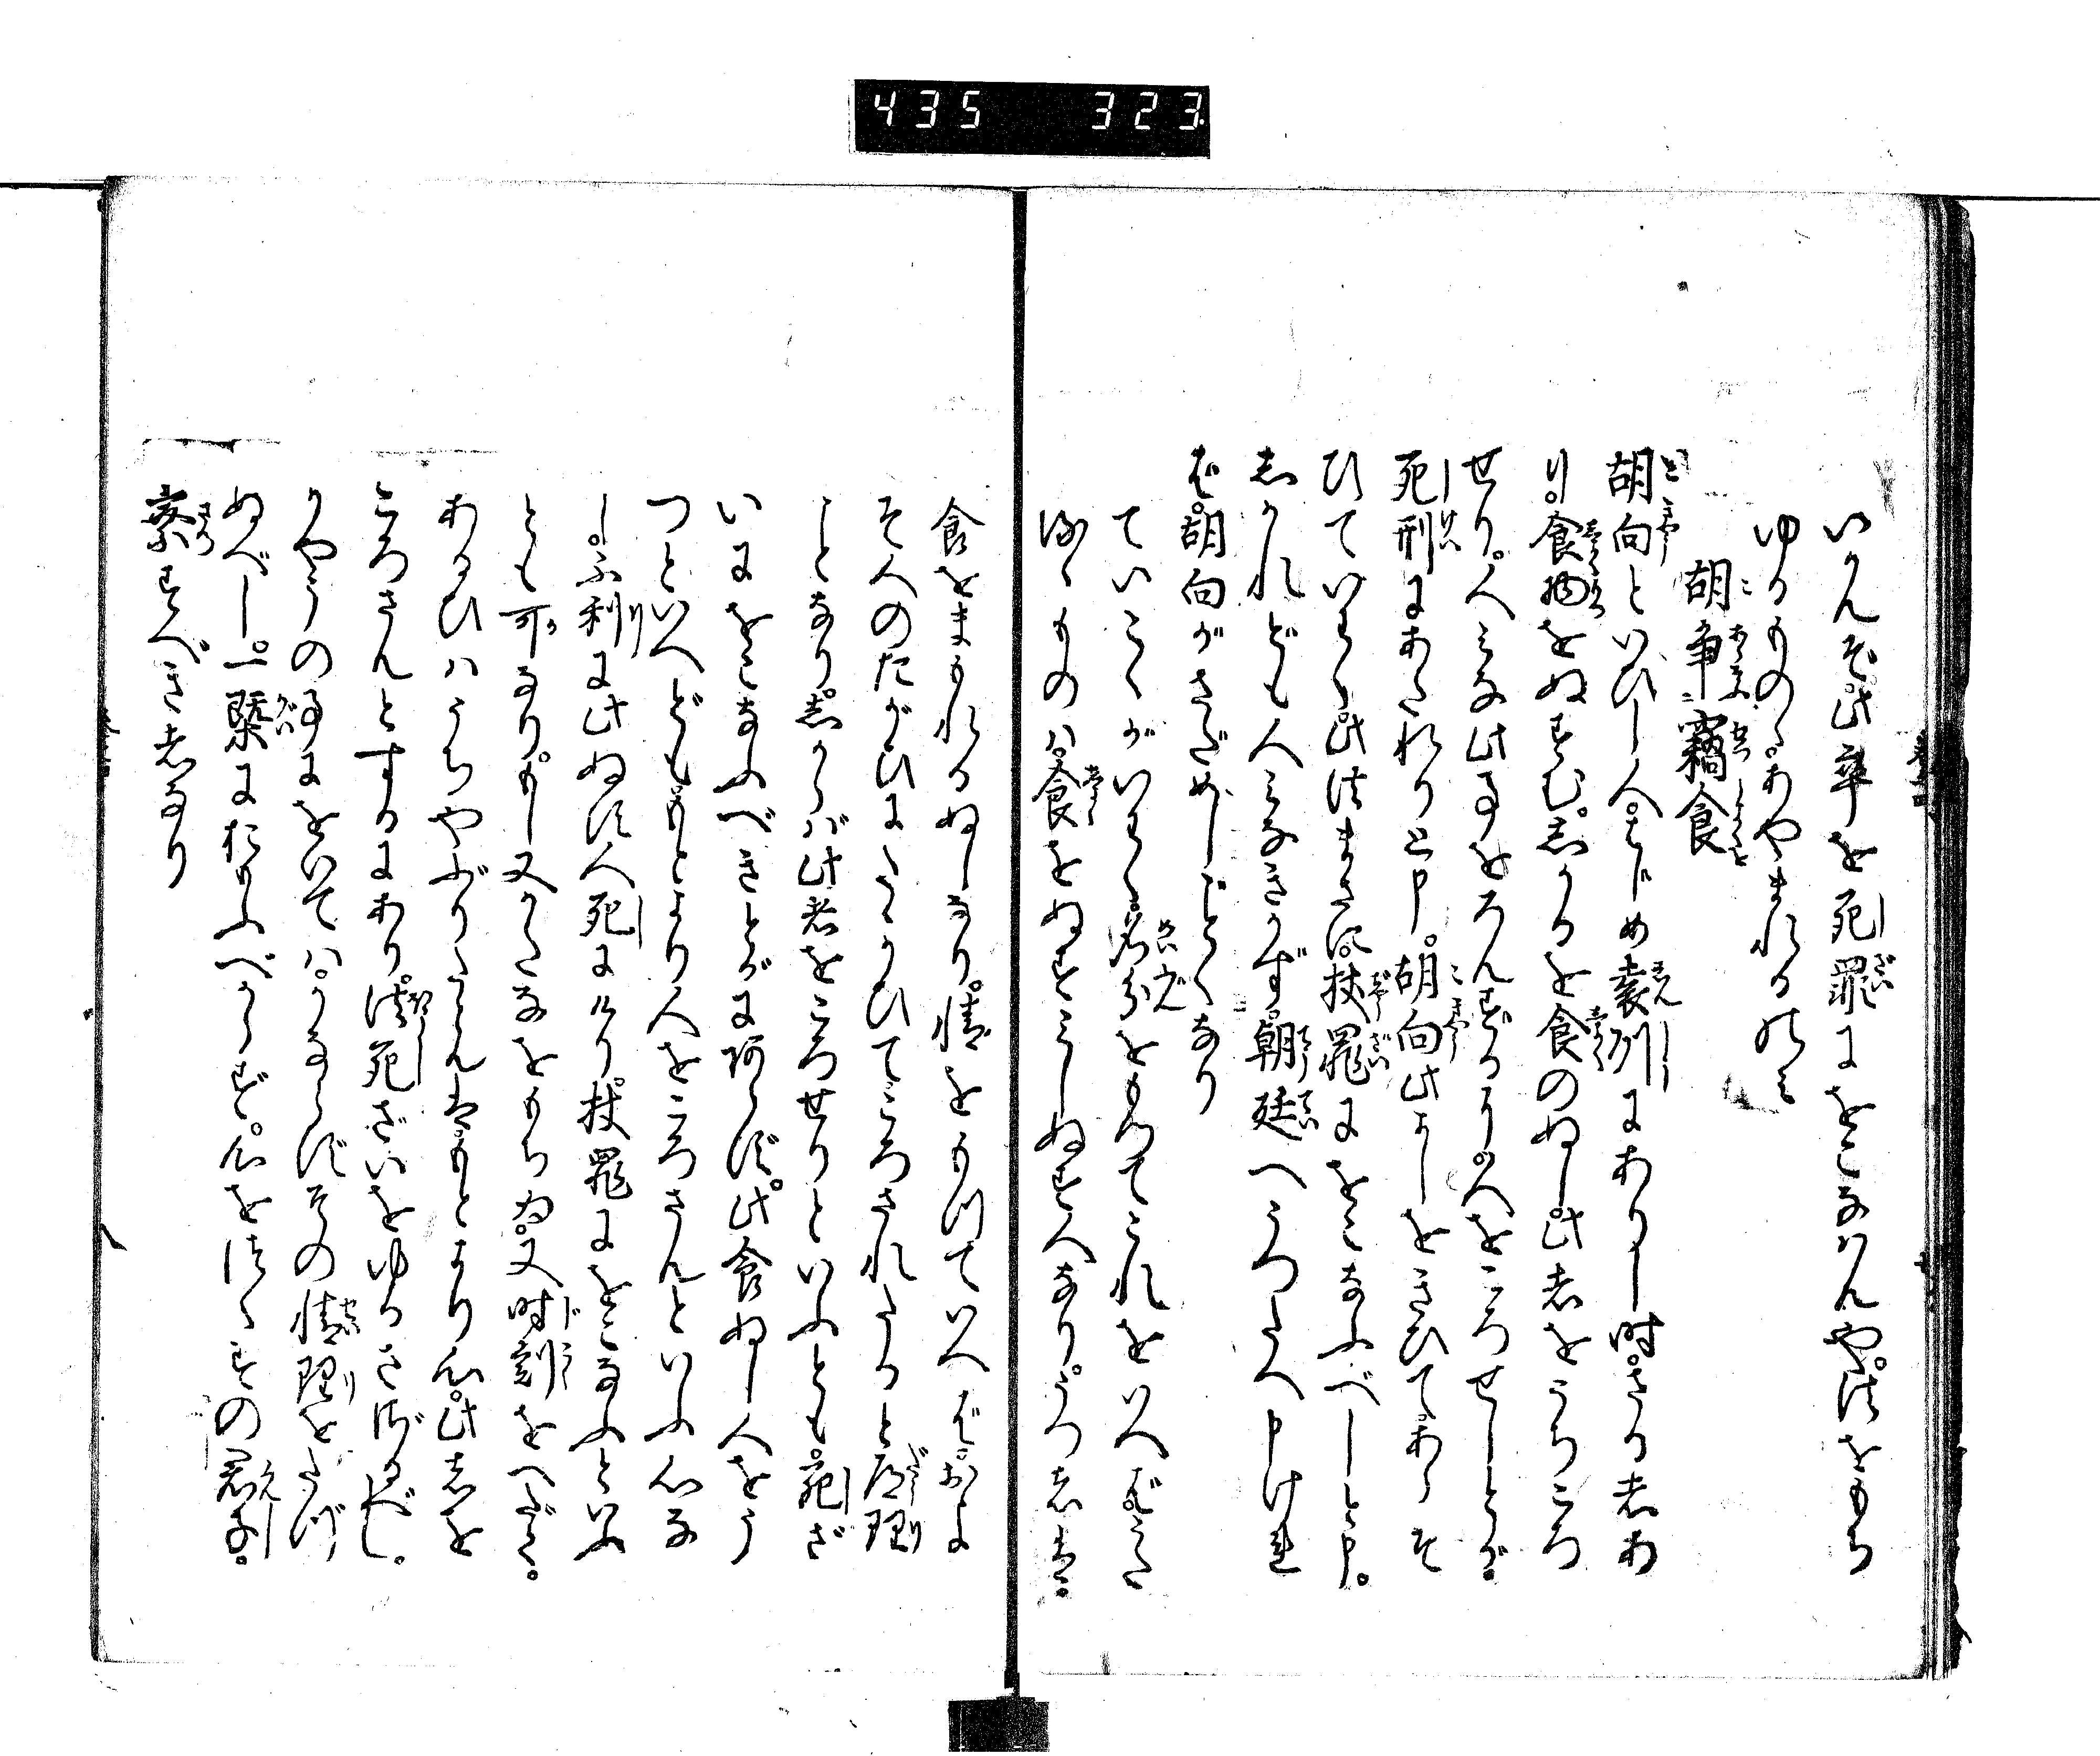 435 323
いかんぞ此卒を死罪におこなはんや。法をもち
ゆるものゝ。あやまれるのミ
胡争竊食
胡向といひし人。はじめ袁州にありし時。さる者あ
り。食物をぬすむ。しかるを食のぬし。此者をうちころ
せり。人ミな此事をろんずるに。人をころせしとが。
死刑にあたれりと申。胡向此よしをきひて。あらそ
ひていはく。此法まさに。杖罪におこなふべしと申。
しかれども人ミなきかず。朝廷へうつたへ申けれ
ば。胡向がさだめしごとくなり
ていこくがいはく。名分をもつてこれをいへば。うた
るゝものハ。食をぬすミしぬす人なり。うつ者は。
食をまもれるぬしなり。情をもつていへば。およ
そ人のたがひにたゝかひてころされたると。道理
ことなり。しからバ此者をころせりといふとも。死ざ
いにをこなふべきとがにあらず。此食ぬし人をう
つといへども。もとより人をころさんといふ心な
し。ふ利に此ぬす人死にけり。杖罪にをこなふといふ
とも可なり。もし又かたなをもちゐ。又時刻をへだて。
あるひハうちやぶりたらんは。もとより心。此者を
ころさんとするにあり。法死ざいをゆるさゞるべし。
かやうの事にをいてハ。かならずその情理をたづ
ぬべし。一槩におもふべからず。心をつくすの君子。
察すべき者なり